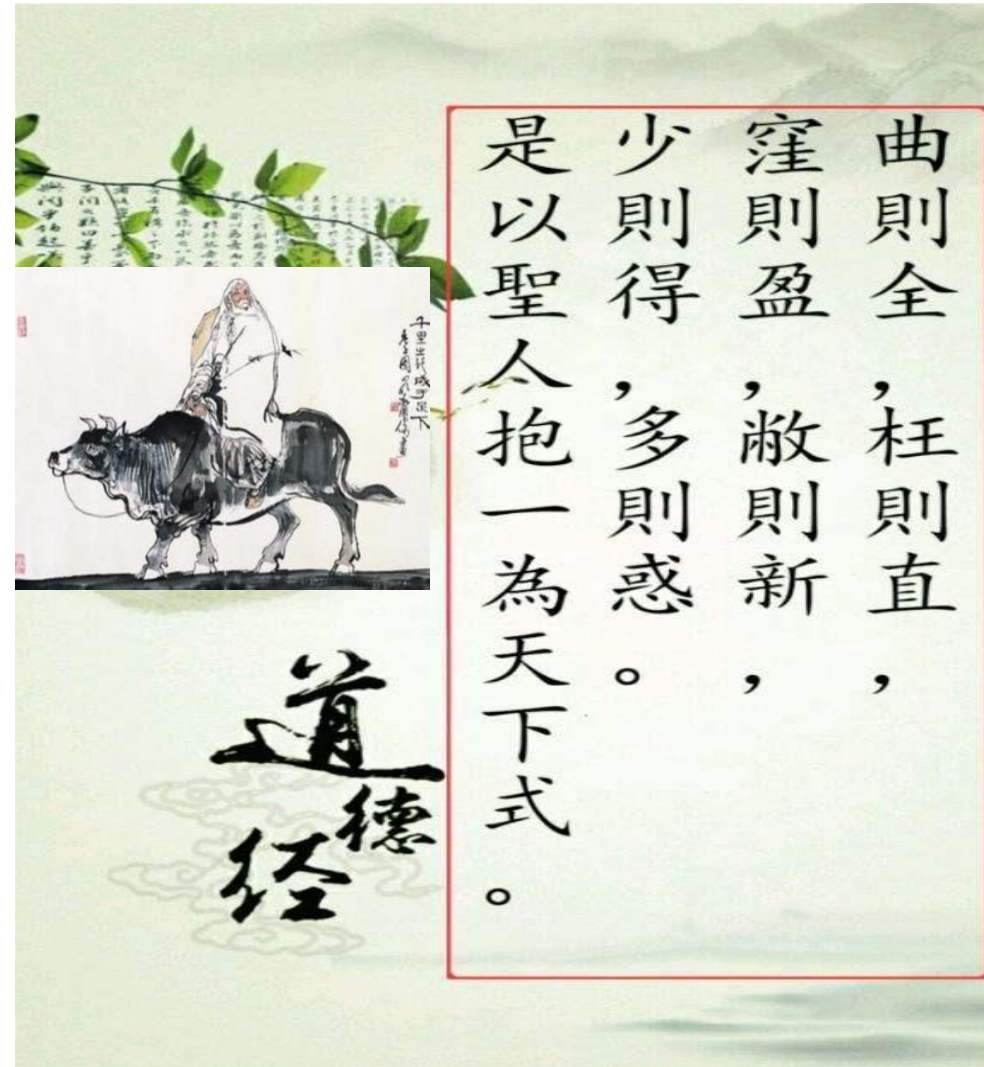 曲則全，枉則直，
窪則盈，敝則新，
少則得，多則惑。
是以聖人抱一為天下式。
千里之行始于足下
道德经